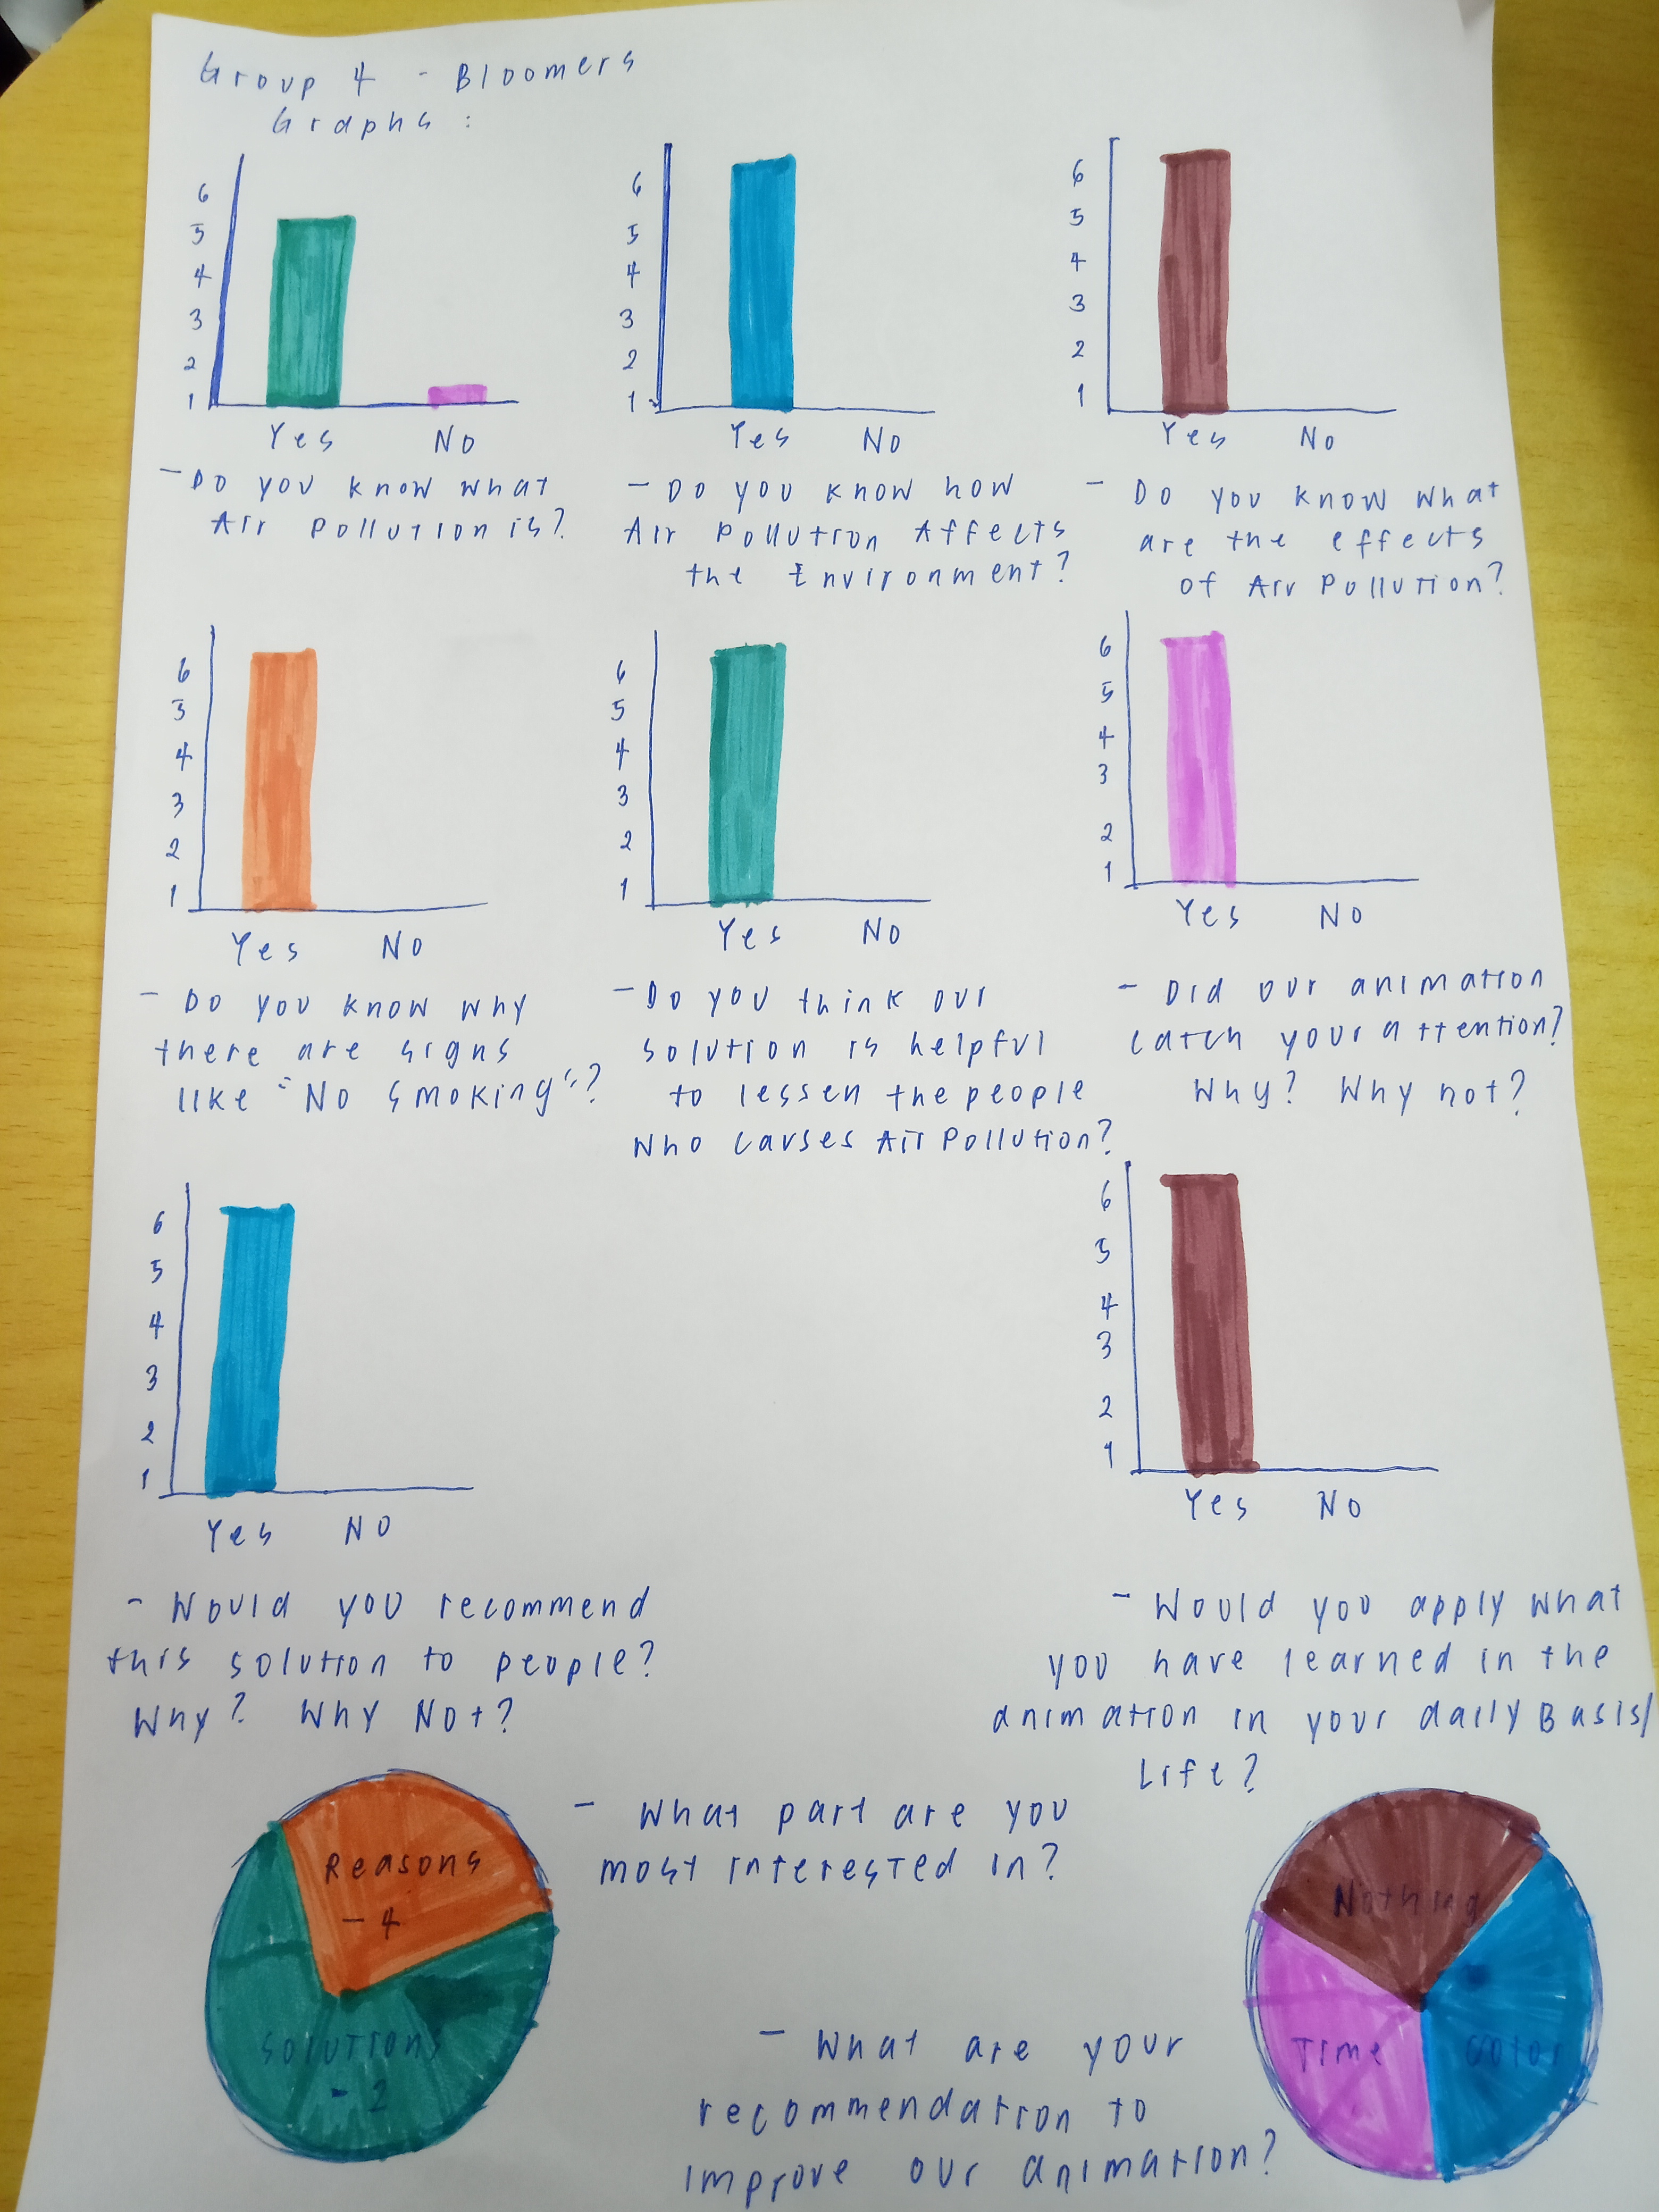 Group 4 - Bloomers
Graphs :
6
5
4
3
2
1
Yes No
- Do you know what
Air Pollution is?
6
5
4
3
2
1
Yes No
- Do you know how
Air Pollution Affects
the Environment?
6
5
4
3
2
1
Yes No
- Do you know what
are the effects
of Air Pollution?
6
5
4
3
2
1
Yes No
- Do you know why
there are signs
like "No smoking"?
6
5
4
3
2
1
Yes No
- Do you think our
solution is helpful
to lessen the people
who causes Air Pollution?
6
5
4
3
2
1
Yes No
- Did our animation
catch your attention?
Why? Why not?
6
5
4
3
2
1
Yes No
- Would you recommend
this solution to people?
Why? Why Not?
6
5
4
3
2
1
Yes No
- Would you apply what
you have learned in the
animation in your daily Basis/
Life?
Reasons
- 4
Solutions
- 2
- What part are you
most interested in?
- What are your
recommendation to
improve our animation?
Nothing
Time
Color